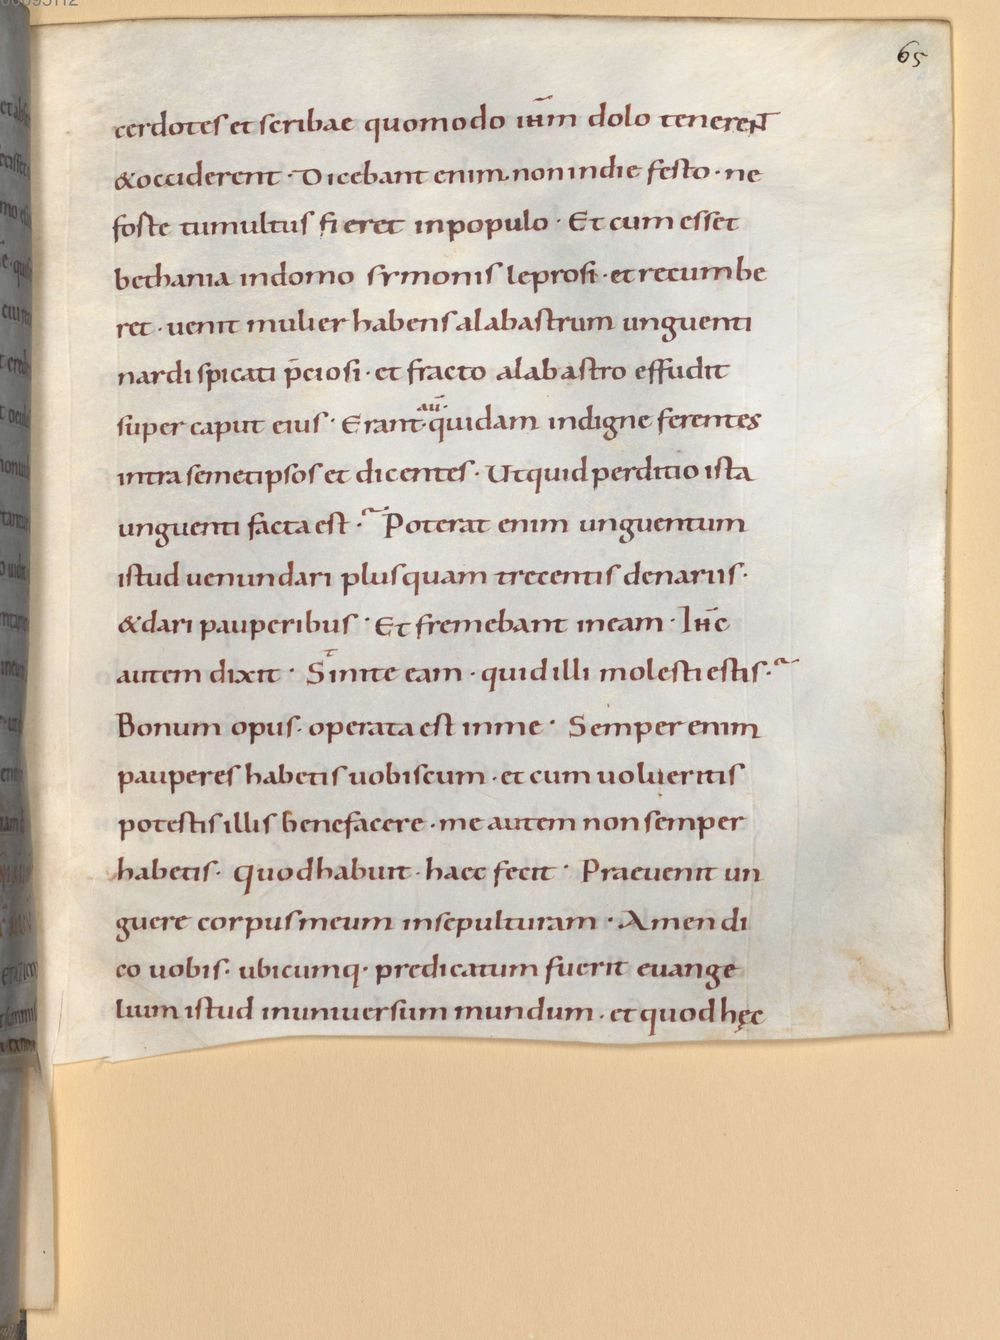 65
cerdotes et scribae quomodo ih̅m dolo tenerent
&occiderent · Dicebant enim. non indie festo · ne
foste tumultus fieret inpopulo · Et cum esset
bethania indomo symonis leprosi · et recumbe
ret · uenit mulier habens alabastrum unguenti
nardi spicati p̅ciosi · et fracto alabastro effudit
super caput eius · Erant au̅ quidam indigne ferentes
intra semetipsos et dicentes · Utquid perditio ista
unguenti facta est · Poterat enim unguentum
istud uenundari plus quam trecentis denariis ·
&dari pauperibus · Et fremebant ineam · Ih̅c
autem dixit · Sinite eam · quid illi molesti estis ·
Bonum opus · operata est inme · Semper enim
pauperes habetis uobiscum · et cum uolueritis
potestis illis benefacere · me autem non semper
habetis · quod habuit · haec fecit · Praeuenit un
guere corpus meum insepulturam · Amen di
co uobis · ubicumq· predicatum fuerit euange
lium istud inuniuersum mundum · et quod hęc